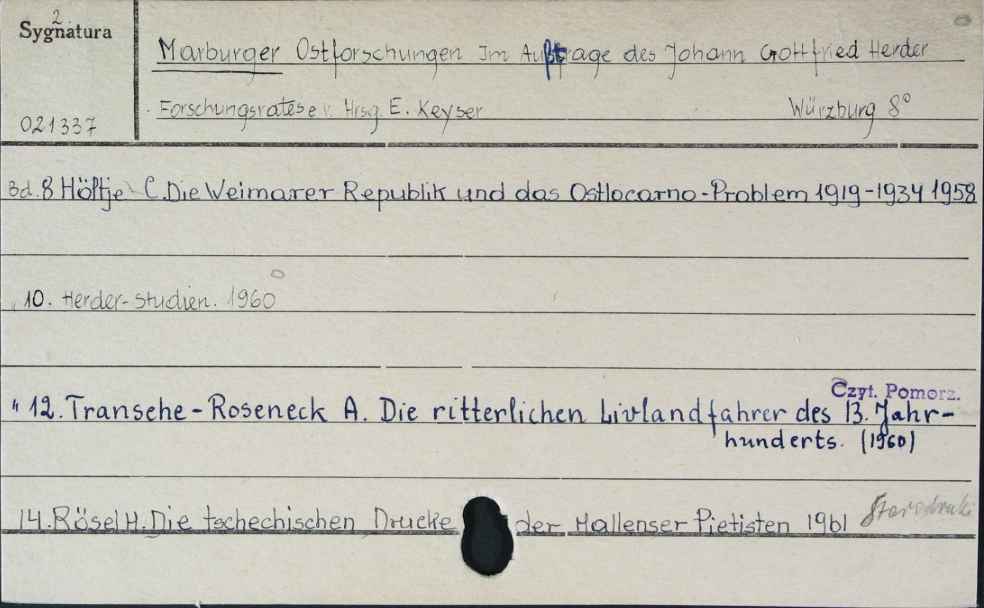 2
Sygnatura
021337
Marburger Ostforschungen Im Auftrage des Johann Gottfried Herder
Forschungsrates e. v. Hrsg E. Keyser Würzburg 8°
Bd. 8 Höltje C. Die Weimarer Republik und das Ostlocarno-Problem 1919-1934 1958
10. Herder-Studien. 1960
Czyt. Pomorz.
" 12. Transehe-Roseneck A. Die ritterlichen Livlandfahrer des 13. Jahr-
hunderts. (1960)
14. Rösel H. Die tschechischen Drucke der Hallenser Pietisten 1961 Starodruki